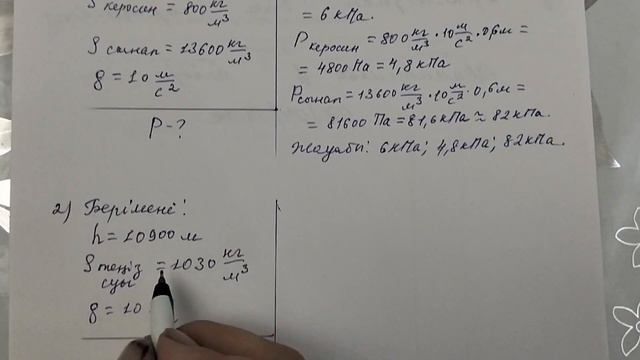 ρ керосин = 800 кг/м³
ρ сынап = 13600 кг/м³
g = 10 м/с²
P - ?
= 6 кПа.
P керосин = 800 кг/м³ · 10 м/с² · 0,6 м =
= 4800 Па = 4,8 кПа
P сынап = 13600 кг/м³ · 10 м/с² · 0,6 м =
= 81600 Па = 81,6 кПа ≈ 82 кПа.
Жауабы: 6 кПа; 4,8 кПа; 82 кПа.
2) Берілгені:
h = 10900 м
ρ теңіз суы = 1030 кг/м³
g = 10